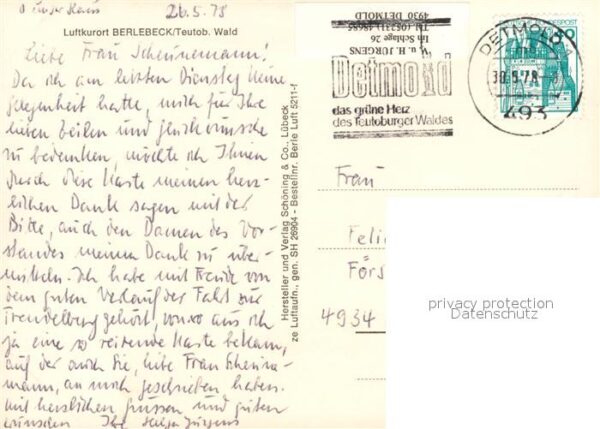 26.5.78
Luftkurort BERLEBECK/Teutob. Wald
Liebe Frau Scheunemann!
Da ich am letzten Dienstag keine
Gelegenheit hatte, mich für Ihre
lieben Zeilen und Glückwünsche
zu bedanken, möchte ich Ihnen
durch diese Karte meinen herz-
lichen Dank sagen mit der
Bitte, auch den Damen des Vor-
standes meinen Dank zu über-
mitteln. Ich habe mit Freude von
dem guten Verlauf der Fahrt zur
Trendelburg gehört, von wo aus ich
ja eine so reizende Karte bekam,
auf der auch Sie, liebe Frau Scheune-
mann, an mich geschrieben haben.
mit herzlichen Grüssen und guten
Wünschen Ihre Helga Jürgens
Hersteller und Verlag Schöning & Co., Lübeck
ze Luftaufn., gen. SH 26904 - Bestellnr. Berle Luft 5211-f
u. H. JÜRGENS
Schlage 26
4930 DETMOLD
Detmold
das grüne Herz
des Teutoburger Waldes
DETMOLD 1
30.5.78
493
BUNDESPOST
Frau
Feli
Förs
4934
privacy protection
Datenschutz